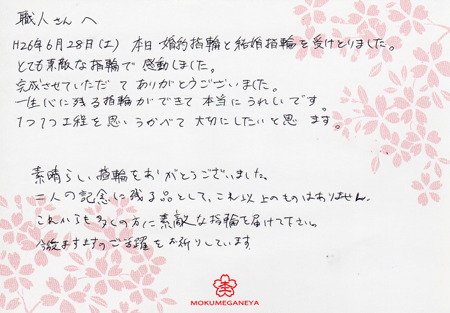 職人さんへ
H26年6月28日(土) 本日 婚約指輪と結婚指輪を受けとりました。
とても素敵な指輪で 感動しました。
完成させていただいて ありがとうございました。
一生心に残る指輪ができて 本当にうれしいです。
1つ1つ工程を思いうかべて 大切にしたいと思います。
素晴らしい指輪をありがとうございました。
二人の記念に残る品として、これ以上のものはありません。
これからも多くの方に素敵な指輪を届けて下さい。
今後ますますのご活躍をお祈りしています。
MOKUMEGANEYA